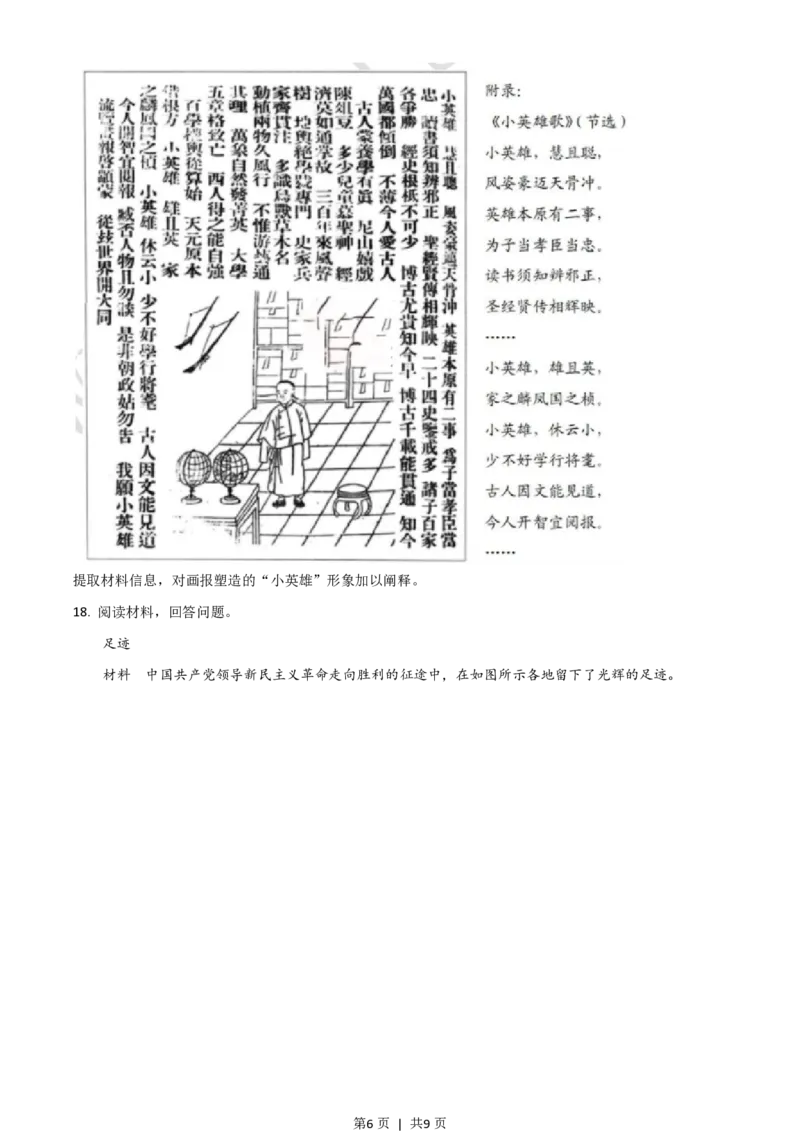 小英雄 慧且聰 風姿豪邁天骨沖 英雄本原有二事 爲子當孝臣當
忠 讀書須知辨邪正 聖經賢傳相輝映 二十四史鑒戒多 諸子百家
各爭勝 經史根柢不可少 博古尤貴知今早 博古千載能貫通 知今
萬國都傾倒 不薄今人愛古人
古人蒙養學有眞 尼山嬉戲
陳俎豆 多少兒童慕聖神 經
濟莫如通掌故 三百年來風聲
樹 地輿絕學號專門 史家兵
家齊貫注 多識鳥獸草木名
動植兩物久風行 不惟游藝通
其理 萬象自然發菁英 大學
五章格致亡 西人得之能自強
百學權輿從算始 天元原本
借根方 小英雄 雄且英 家
之麟鳳國之楨 小英雄 休云小 少不好學行將耄 古人因文能見道
今人開智宜閱報 臧否人物且勿談 是非朝政姑勿吿 我願小英雄
流覽畫報啓顓蒙 從玆世界開大同
附录：
《小英雄歌》（节选）
小英雄，慧且聪，
风姿豪迈天骨冲。
英雄本原有二事，
为子当孝臣当忠。
读书须知辨邪正，
圣经贤传相辉映。
……
小英雄，雄且英，
家之麟凤国之桢。
小英雄，休云小，
少不好学行将耄。
古人因文能见道，
今人开智宜阅报。
……
提取材料信息，对画报塑造的“小英雄”形象加以阐释。
18. 阅读材料，回答问题。
足迹
材料 中国共产党领导新民主义革命走向胜利的征途中，在如图所示各地留下了光辉的足迹。
第6页 | 共9页